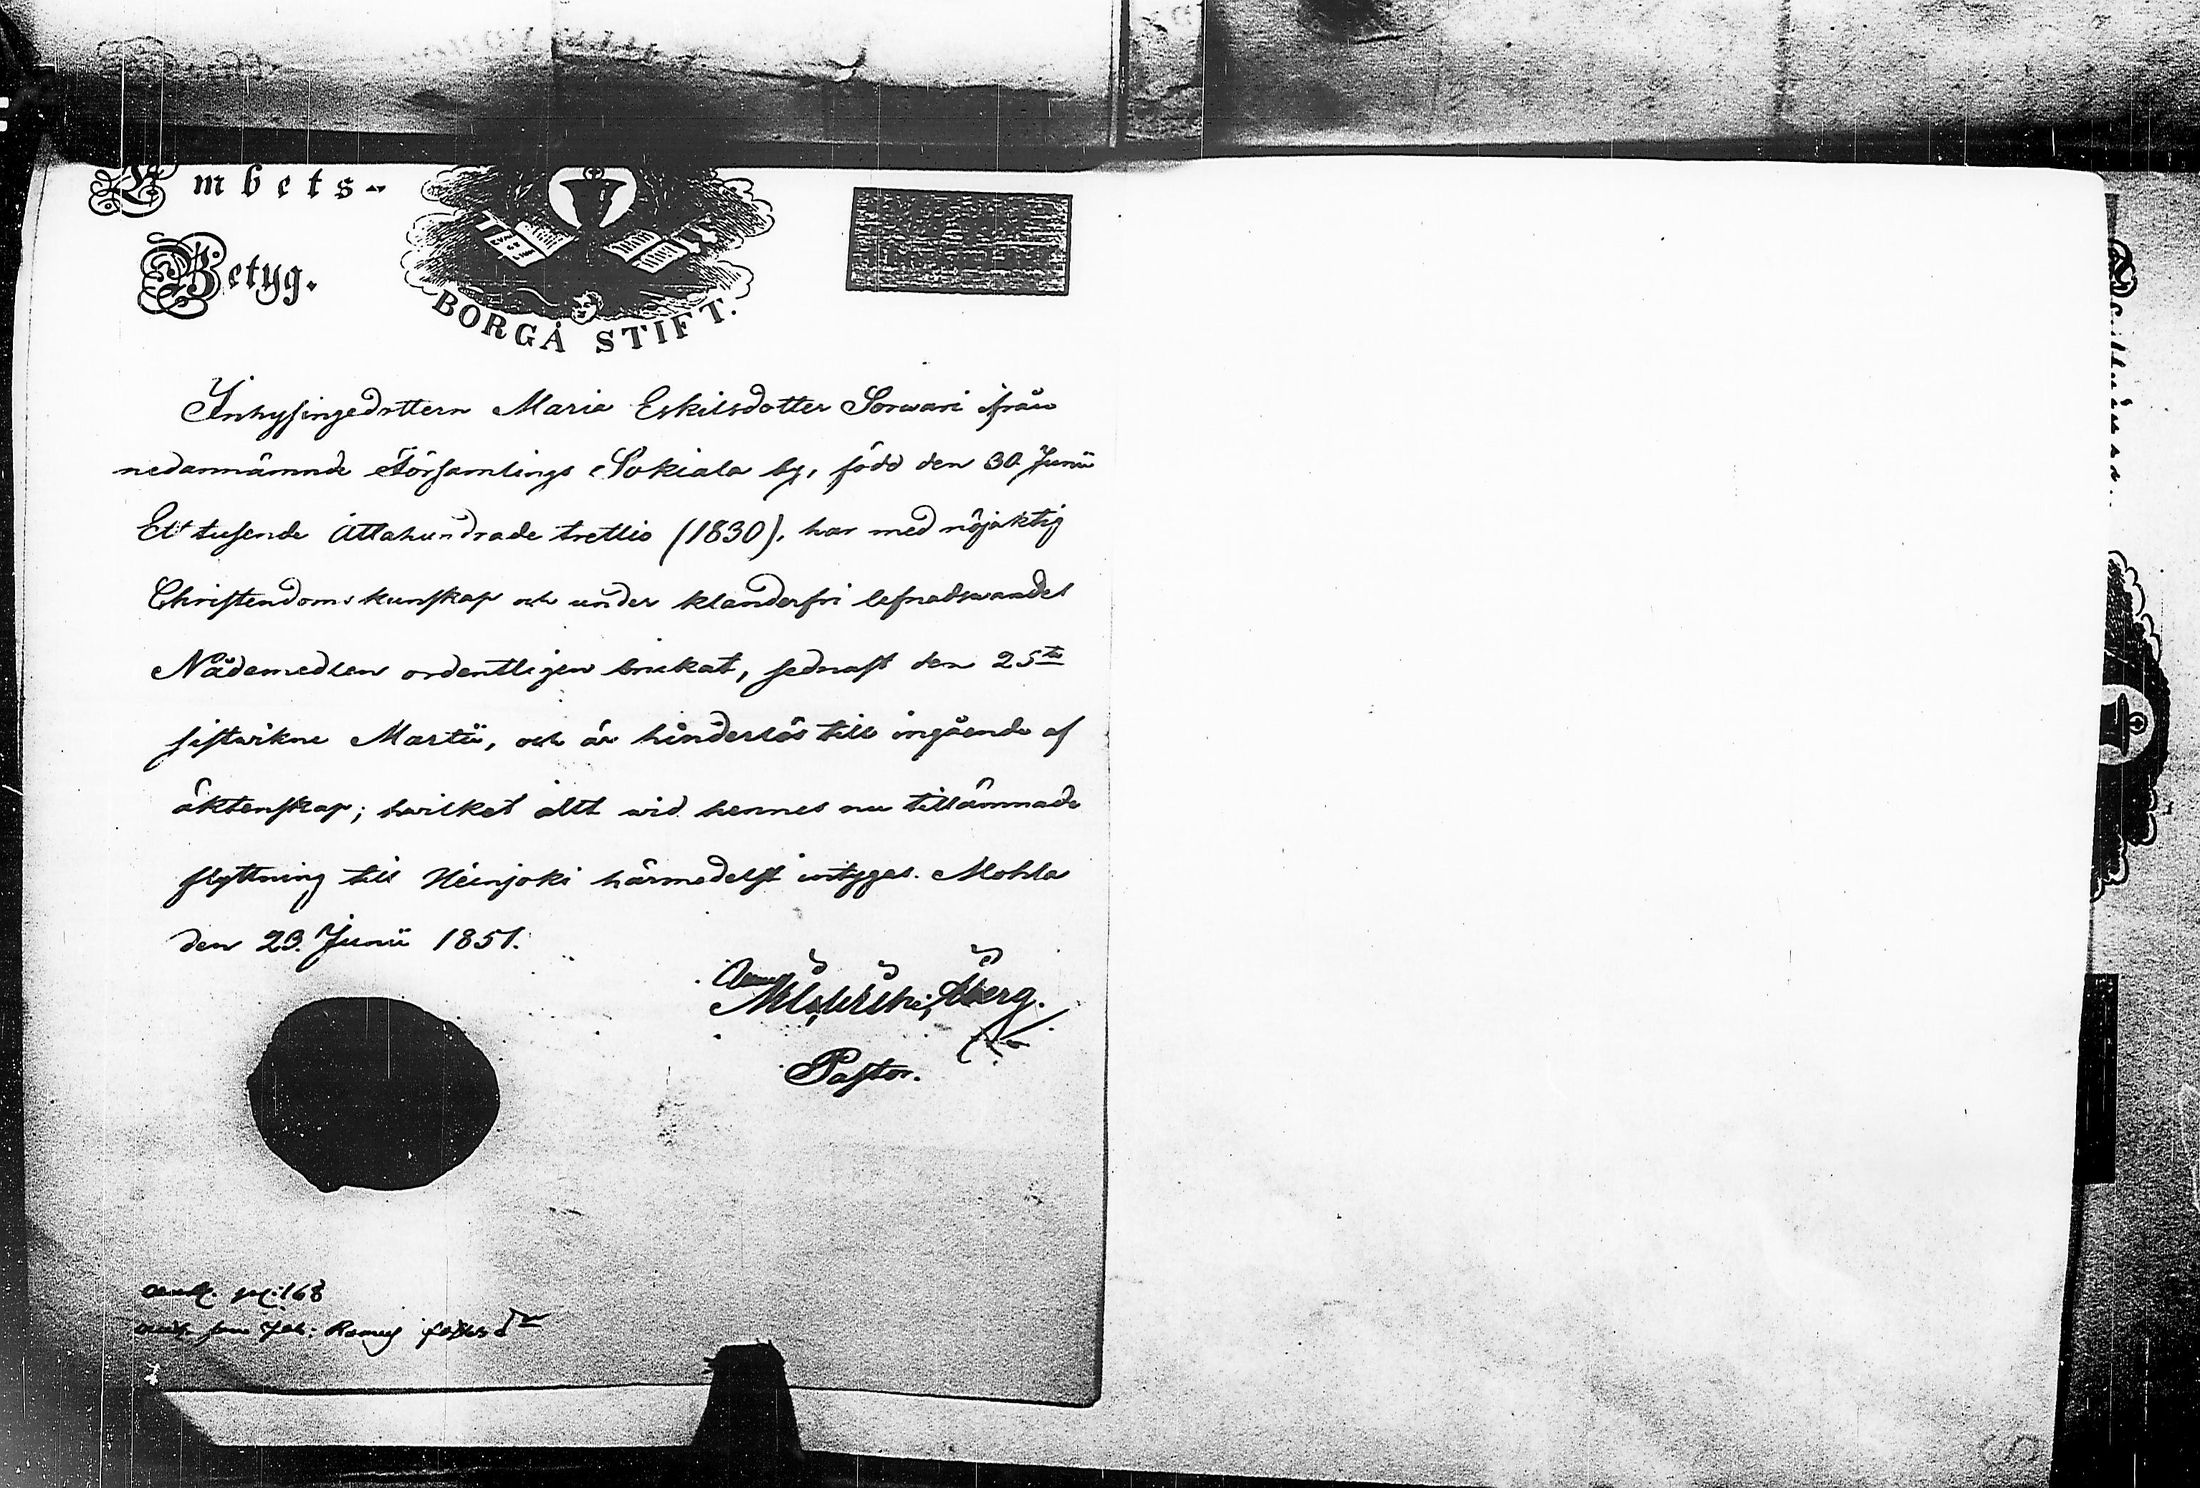 Embets-
Betyg.
BORGÅ STIFT.
Inhysingedottern Maria Eskilsdotter Sorwari ifrån
nedannämnde Församlings Sokiala by, född den 30 Junii
Ett tusende Åttahundrade trettio (1830), har med nöjaktig
Christendoms kunskap och under klanderfri lefnadswandel
Nådemedlen ordentligen brukat, sednast den 25te
sistwikne Martii, och är hinderlös till ingående af
äktenskap; hwilket allt wid hennes nu tillämnade
flyttning till Heinjoki härmedelst intygas. Mohla
den 23. Junii 1851.
Pastor.